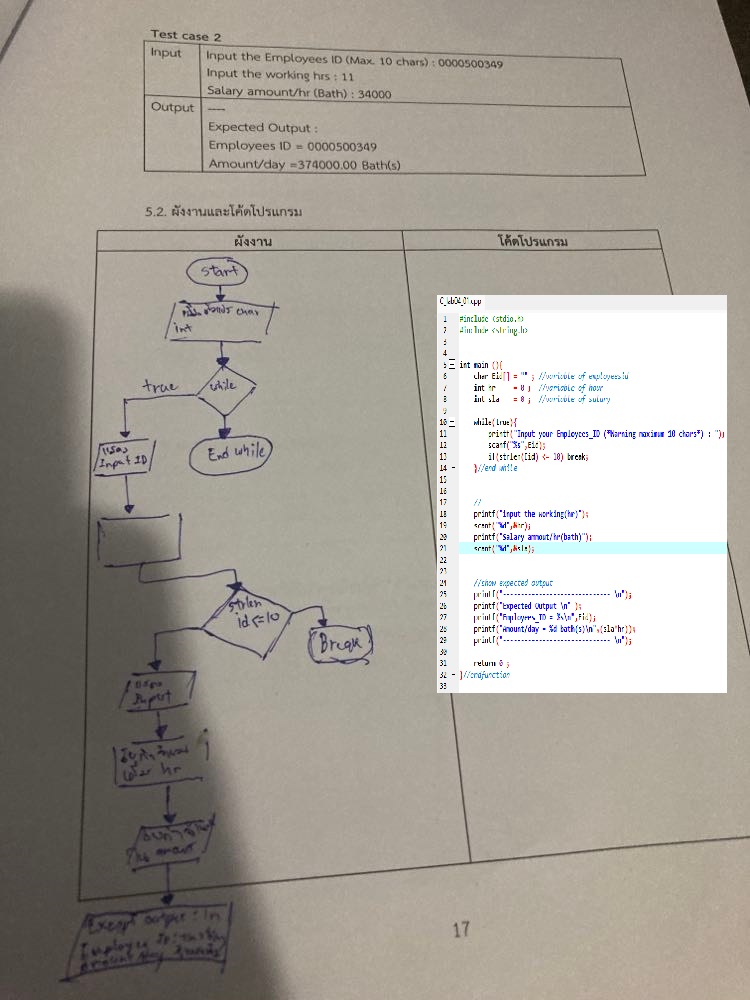 Test case 2
Input
Input the Employees ID (Max. 10 chars) : 0000500349
Input the working hrs : 11
Salary amount/hr (Bath) : 34000
Output
----
Expected Output :
Employees ID = 0000500349
Amount/day =374000.00 Bath(s)
5.2. ผังงานและโค้ดโปรแกรม
ผังงาน
โค้ดโปรแกรม
start
char
int
while
true
End while
แสดง
Input ID
strlen
id <=10
Break
แสดง
Input
hr
amount
Output : In
Employee
amount
17
C_lab04_01.cpp
1 #include <stdio.h>
2 #include <string.h>
3
4
5 int main (){
6 char Eid[] = "" ; //variable of employeesid
7 int hr = 0 ; //variable of hour
8 int sla = 0 ; //variable of salary
9
10 while(true){
11 printf("Input your Employees_ID (*Warning maximum 10 chars*) : ");
12 scanf("%s",Eid);
13 if(strlen(Eid) <= 10) break;
14 }//end while
15
16
17 //
18 printf("input the working(hr)");
19 scanf("%d",&hr);
20 printf("Salary ammout/hr(bath)");
21 scanf("%d",&sla);
22
23
24 //show expected output
25 printf("------------------------------ \n");
26 printf("Expected Output \n" );
27 printf("Employees_ID = %s\n",Eid);
28 printf("Amount/day = %d bath(s)\n",(sla*hr));
29 printf("------------------------------ \n");
30
31 return 0 ;
32 }//endfunction
33